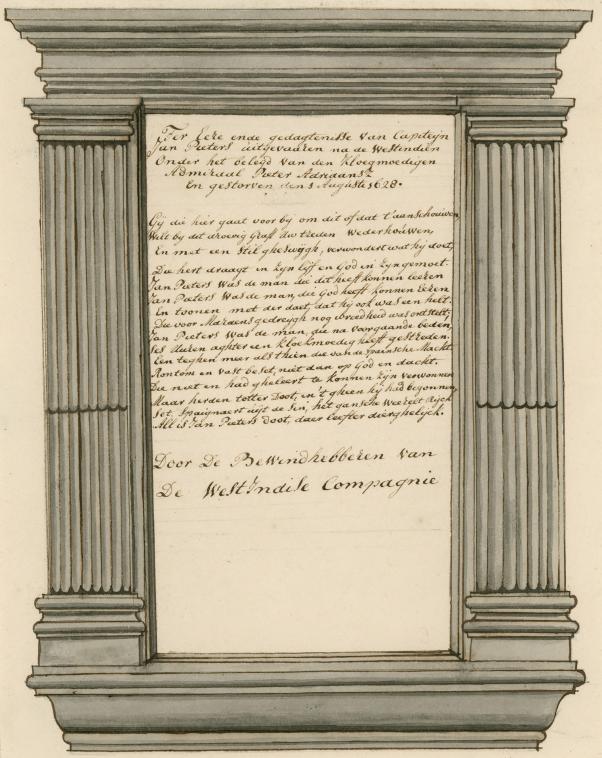 Ter Eere ende gedagtenisse van Capiteijn
Jan Pieters uitgevaaren na de Westindien
Onder het belegd van den Kloegmoedigen
Admiraal Pieter Adriaansz
En gestorven den 1 Auguste 1628.
Gij die hier gaat voor bij om dit of dat t'aanschouwen
Wilt bij dit droevig Graff uw treden wederhouwen,
En met een stil gheswijgh, verwondert wat hij doet,
Die hert draagt in zijn lijf en God in zijn gemoet.
Jan Pieters was de man die dit heeft konnen leeren
Jan Pieters was de man, die God heeft konnen eeren
En toonen met der daet, dat hij ook was een helt.
Die voor Maraens gedreijgh nog wreedheid was ontstelt;
Jan Pieters was de man, die na voorgaande beden,
Ses Uuren aghter een kloekmoedig heeft gestreden.
Een teghen meer als thien die van de spainsche Macht
Rontom en vast beset, niet dan op God en dacht.
Die niet en had gheleert te konnen zijn verwonnen
Maar herden totter Doot, in 't gheen hij had begonnen,
Set, Spaignaert uijt de sin, het gansche Weereet Rijck
Al is Jan Pieters doot, daer leefter dierghelijck.
Door De Bewindhebberen van
De WestIndise Compagnie